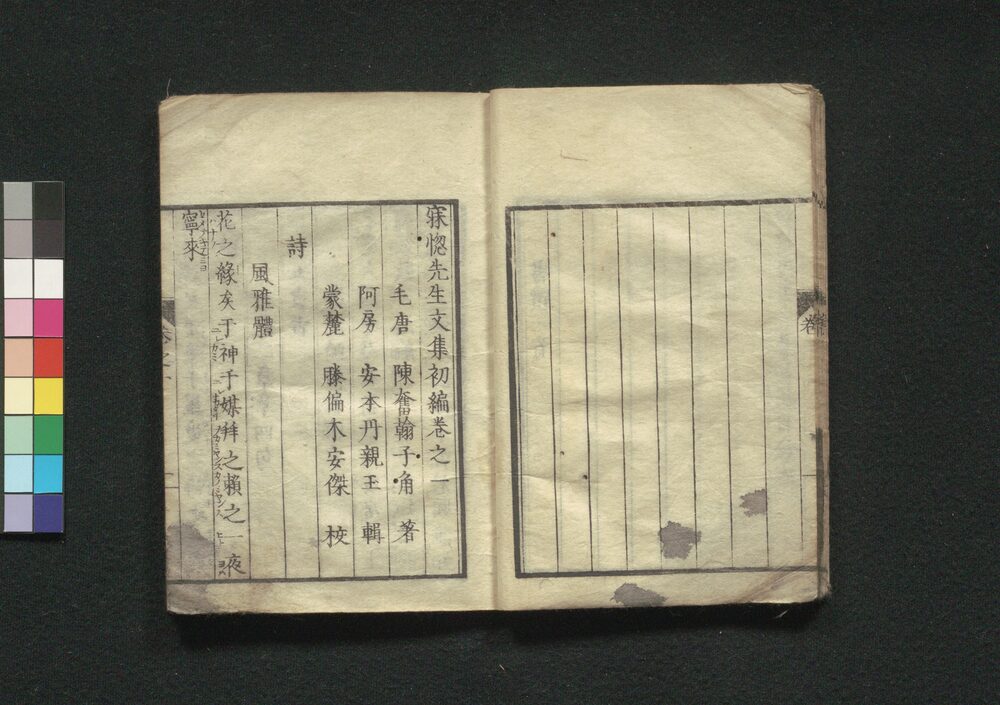 寐惚先生文集初編卷之一
毛唐 陳奮翰子角 著
阿房 安本丹親玉 輯
蒙麓 滕偏木安傑 校
詩
風雅體
花之緣矣于神于媒拜之賴之一夜
寧來
卷